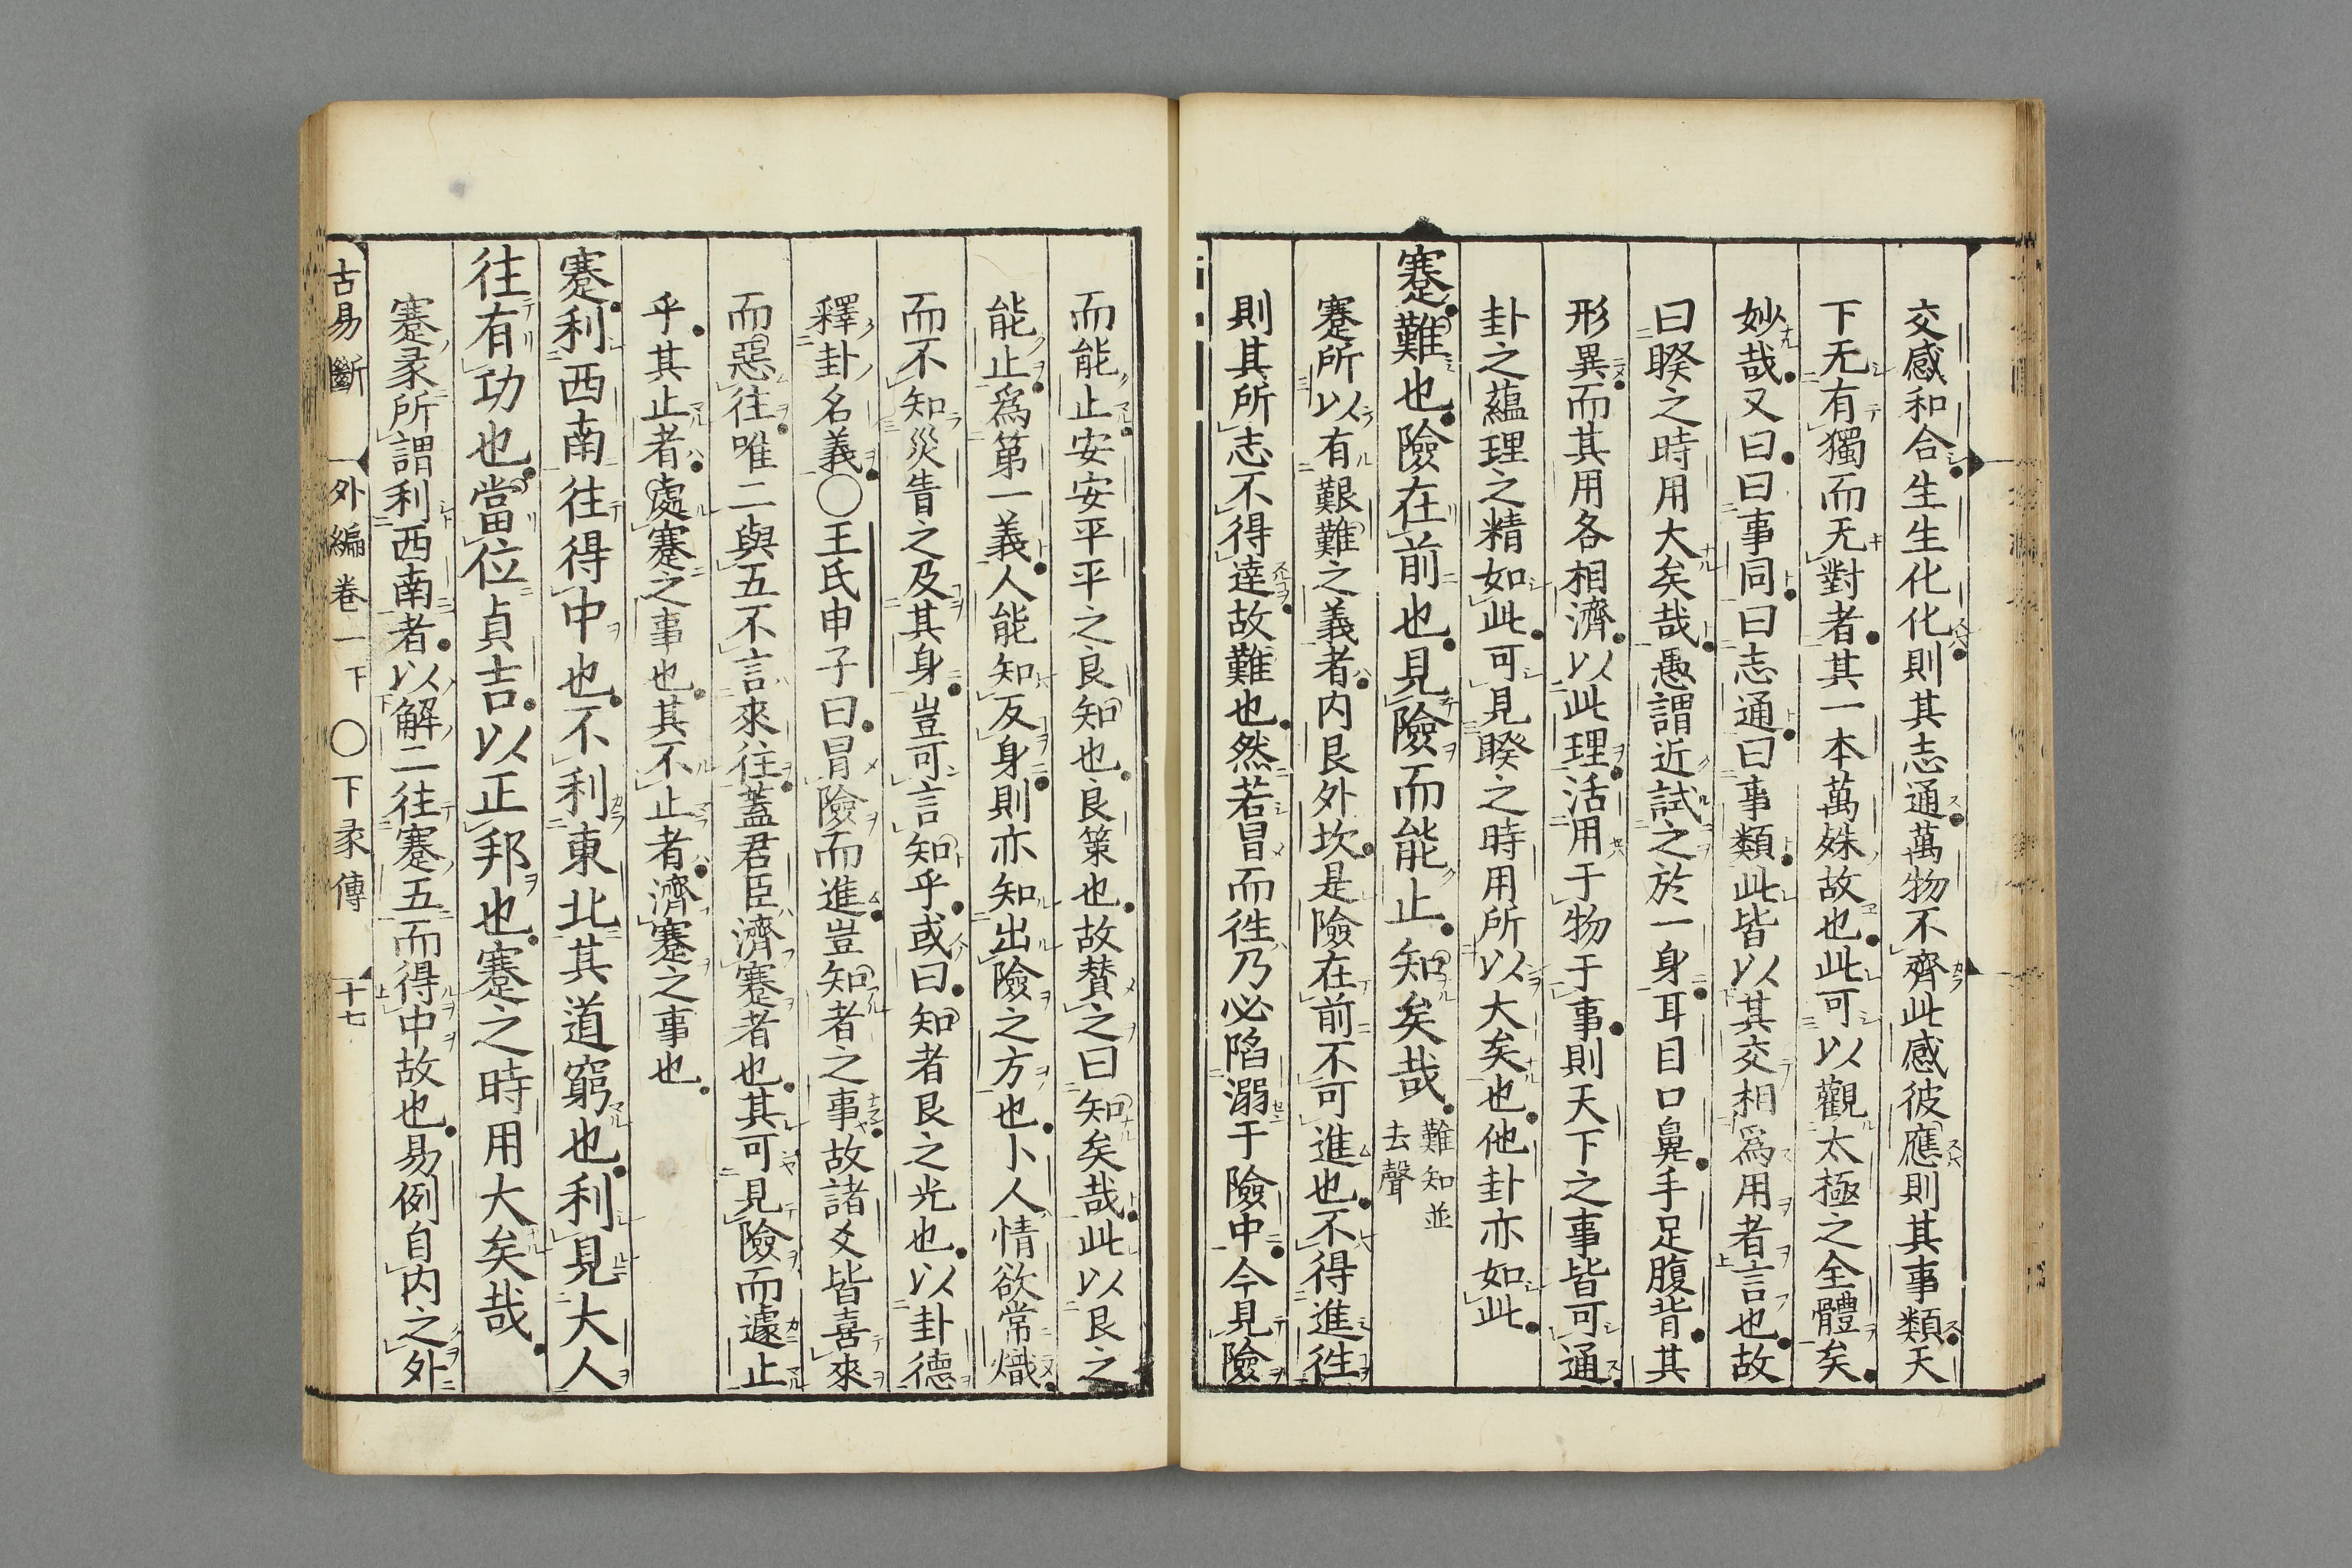 交感和合生生化化則其志通萬物不齊此感彼應則其事類天
下无有獨而无對者其一本萬姝故也此可以觀太極之全體矣
妙哉又曰曰事同曰志通曰事類此皆以其交相爲用者言也故
曰睽之時用大矣哉愚謂近試之於一身耳目口鼻手足腹背其
形異而其用各相濟以此理活用于物于事則天下之事皆可通
卦之蘊理之精如此可見睽之時用所以大矣也他卦亦如此
蹇難也險在前也見險而能止知矣哉難知並去聲
蹇所以有艱難之義者内艮外坎是險在前不可進也不得進徃
則其所志不得達故難也然若冒而徃乃必陷溺于險中今見險
而能止安安平平之良知也良策也故賛之曰知矣哉此以艮之
能止爲第一義人能知反身則亦知出險之方也卜人情欲常熾
而不知災眚之及其身豈可言知乎或曰知者艮之光也以卦德
釋卦名義〇王氏申子曰冐險而進豈知者之事故諸爻皆喜來
而惡往唯二與五不言來往蓋君臣濟蹇者也其可見險而遽止
乎其止者處蹇之事也其不止者濟蹇之事也
蹇利西南往得中也不利東北其道窮也利見大人
往有功也當位貞吉以正邦也蹇之時用大矣哉
蹇彖所謂利西南者以解二往蹇五而得中故也易例自内之外
古易斷 外編卷一下 〇下彖傳 十七